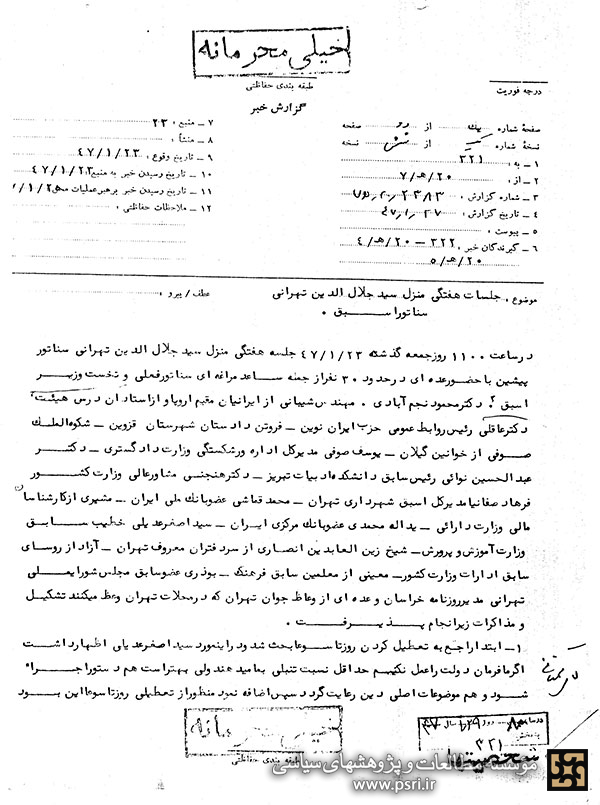 خیلی محرمانه
طبقه بندی حفاظتی
گزارش خبر
درجه فوریت
صفحهٔ شماره یک از دو صفحه
نسخهٔ شماره از نسخه
۱ ـ به : ۳۲۱
۲ ـ از : ۲۰/هـ/۷
۳ ـ شماره گزارش :
۴ ـ تاریخ گزارش :
۵ ـ پیوست :
۶ ـ گیرندگان خبر : ۳۲۲ ـ ۲۰/هـ/۴
۲۰/هـ/۵
۷ ـ منبع : ۲۳
۸ ـ منشأ :
۹ ـ تاریخ وقوع : ۴۷/۱/۲۳
۱۰ ـ تاریخ رسیدن خبر به منبع : ۴۷/۱/۲۳
۱۱ ـ تاریخ رسیدن خبر برهبر عملیات
۱۲ ـ ملاحظات حفاظتی :
موضوع : جلسات هفتگی منزل سید جلال الدین تهرانی
سناتور اسبق .
عطف / پیرو :
در ساعت ۱۱۰۰ روز جمعه گذشته ۴۷/۱/۲۳ جلسه هفتگی منزل سید جلال الدین تهرانی سناتور
پیشین با حضور عده ای در حدود ۳۰ نفر از جمله ساعد مراغه ای سناتور فعلی و نخست وزیر
اسبق ؟ دکتر محمود نجم آبادی . مهندس شیبانی از ایرانیان مقیم اروپا و از استادان درس هیئت
دکتر عاقلی رئیس روابط عمومی حزب ایران نوین ـ فروتن دادستان شهرستان قزوین ـ شکوه الملک
صوفی از خوانین گیلان ـ یوسف صوفی مدیر کل اداره ورشکستگی وزارت دادگستری ـ دکتر
عبدالحسین نوائی رئیس سابق دانشکده ادبیات تبریز ـ دکتر هنجنی مشاور عالی وزارت کشور
فرهاد صفانیا مدیر کل اسبق شهرداری تهران ـ محمد قماشی عضو بانک ملی ایران ـ مشیری از کارشناسان
مالی وزارت دارائی ـ یداله محمدی عضو بانک مرکزی ایران ـ سید اصغر عدیلی خطیب سابق
وزارت آموزش و پرورش ـ شیخ زین العابدین انصاری از سردفتران معروف تهران ـ آزاد از روسای
سابق ادارات وزارت کشور ـ معینی از معلمین سابق فرهنگ ـ بوذری عضو سابق مجلس شورایملی
تهرانی مدیر روزنامه خراسان و عده ای از وعاظ جوان تهران که در محلات تهران وعظ میکنند تشکیل
و مذاکرات زیر انجام پذیرفت .
۱ ـ ابتدا راجع به تعطیل کردن روز تاسوعا بحث شد و در اینمورد سید اصغر عدیلی اظهار داشت
اگر ما فرمان دولت را عمل نکنیم حداقل نسبت تنبلی بما میدهند ولی بهتر است هم دستور اجراء
شود و هم موضوعات اصلی دین رعایت گردد سپس اضافه نمود منظور از تعطیلی روز تاسوعا این بود
خیلی محرمانه
طبقه بندی حفاظتی
۳۲۱
موسسه مطالعات و پژوهشهای سیاسی
www.psri.ir